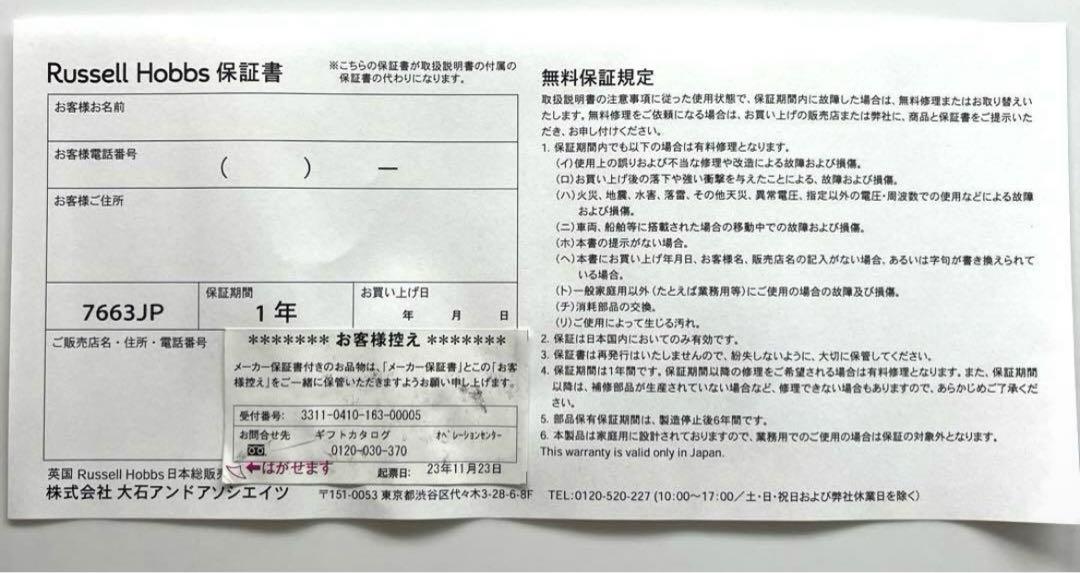 Russell Hobbs 保証書
※こちらの保証書が取扱説明書の付属の
保証書の代わりになります。
お客様お名前
お客様電話番号
（　　　）　　ー
お客様ご住所
7663JP
保証期間
1年
お買い上げ日
年　月　日
ご販売店名・住所・電話番号
******* お客様控え *******
メーカー保証書付きのお品物は、「メーカー保証書」とこの「お客
様控え」をご一緒に保管いただきますようお願い申し上げます。
受付番号: 3311-0410-163-00005
お問合せ先 ギフトカタログ オペレーションセンター
0120-030-370
←はがせます
起票日: 23年11月23日
英国 Russell Hobbs 日本総販売
株式会社 大石アンドアソシエイツ 〒151-0053 東京都渋谷区代々木3-28-6-8F TEL:0120-520-227 (10:00〜17:00／土・日・祝日および弊社休業日を除く)
無料保証規定
取扱説明書の注意事項に従った使用状態で、保証期間内に故障した場合は、無料修理またはお取り替えい
たします。無料修理をご依頼になる場合は、お買い上げの販売店または弊社に、商品と保証書をご提示いた
だき、お申し付けください。
1. 保証期間内でも以下の場合は有料修理となります。
（イ）使用上の誤りおよび不当な修理や改造による故障および損傷。
（ロ）お買い上げ後の落下や強い衝撃を与えたことによる、故障および損傷。
（ハ）火災、地震、水害、落雷、その他天災、異常電圧、指定以外の電圧・周波数での使用などによる故障
および損傷。
（ニ）車両、船舶等に搭載された場合の移動中での故障および損傷。
（ホ）本書の提示がない場合。
（ヘ）本書にお買い上げ年月日、お客様名、販売店名の記入がない場合、あるいは字句が書き換えられて
いる場合。
（ト）一般家庭用以外（たとえば業務用等）にご使用の場合の故障及び損傷。
（チ）消耗部品の交換。
（リ）ご使用によって生じる汚れ。
2. 保証は日本国内においてのみ有効です。
3. 保証書は再発行はいたしませんので、紛失しないように、大切に保管してください。
4. 保証期間は1年間です。保証期間以降の修理をご希望される場合は有料修理となります。また、保証期間
以降は、補修部品が生産されていない場合など、修理できない場合もありますので、あらかじめご了承くだ
さい。
5. 部品保有保証期間は、製造停止後6年間です。
6. 本製品は家庭用に設計されておりますので、業務用でのご使用の場合は保証の対象外となります。
This warranty is valid only in Japan.